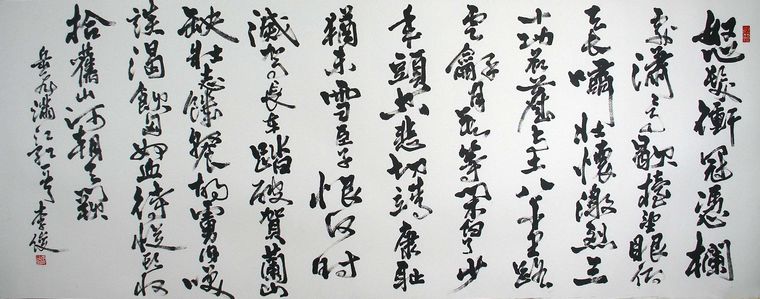 怒髮衝冠憑欄
處瀟瀟雨歇抬望眼仰
天長嘯壯懷激烈三
十功名塵與土八千里路
雲和月莫等閑白了少
年頭空悲切靖康恥
猶未雪臣子恨何時
滅駕長車踏破賀蘭山
缺壯志飢餐胡虜肉笑
談渴飲匈奴血待從頭收
拾舊山河朝天闕
岳飛滿江紅一首李俊